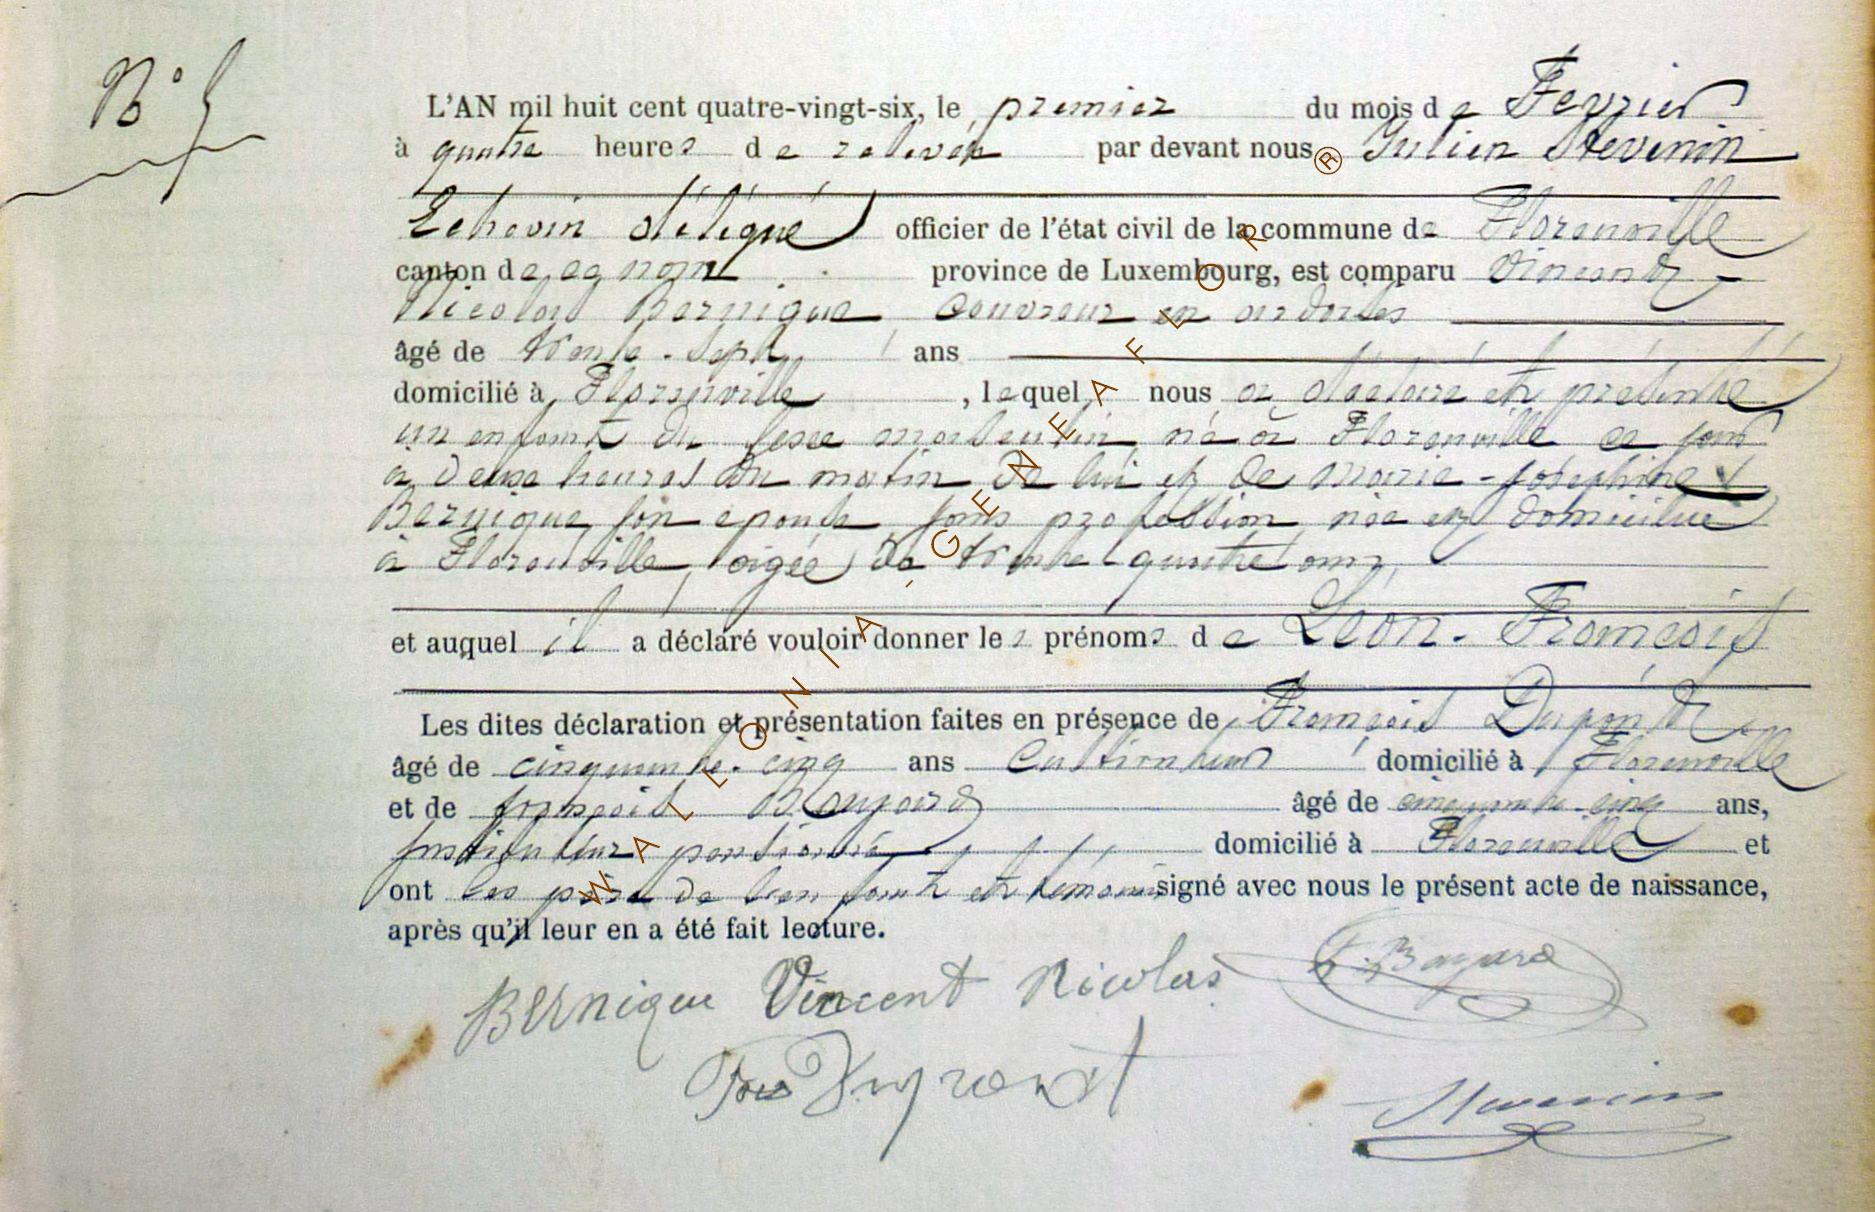 N° 5
L'AN mil huit cent quatre-vingt-six, le premier du mois de Fevrier
à quatre heures de relevée par devant nous Julien Stevenin
Echevin délégué officier de l'état civil de la commune de Florenville
canton de ce nom province de Luxembourg, est comparu Vincent
Nicolas Bernique couvreur en ardoises
âgé de trente-sept ans
domicilié à Florenville, lequel nous a déclaré et présenté
un enfant du sexe masculin né à Florenville ce jour
à deux heures du matin de lui et de Marie-Joséphine
Bernique son épouse sans profession née et domiciliée
à Florenville âgée de trente-quatre ans,
et auquel il a déclaré vouloir donner les prénoms de Léon-François
Les dites déclaration et présentation faites en présence de François Dupont
âgé de cinquante-cinq ans Cultivateur domicilié à Florenville
et de françois Bayard âgé de cinquante-cinq ans,
Instituteur pensionné domicilié à Florenville et
ont les père de l'enfant et témoins signé avec nous le présent acte de naissance,
après qu'il leur en a été fait lecture.
Bernique Vincent Nicolas F. Bayard
Fois Dupont
Stevenin
WALLONIA-GENEAFLOR®